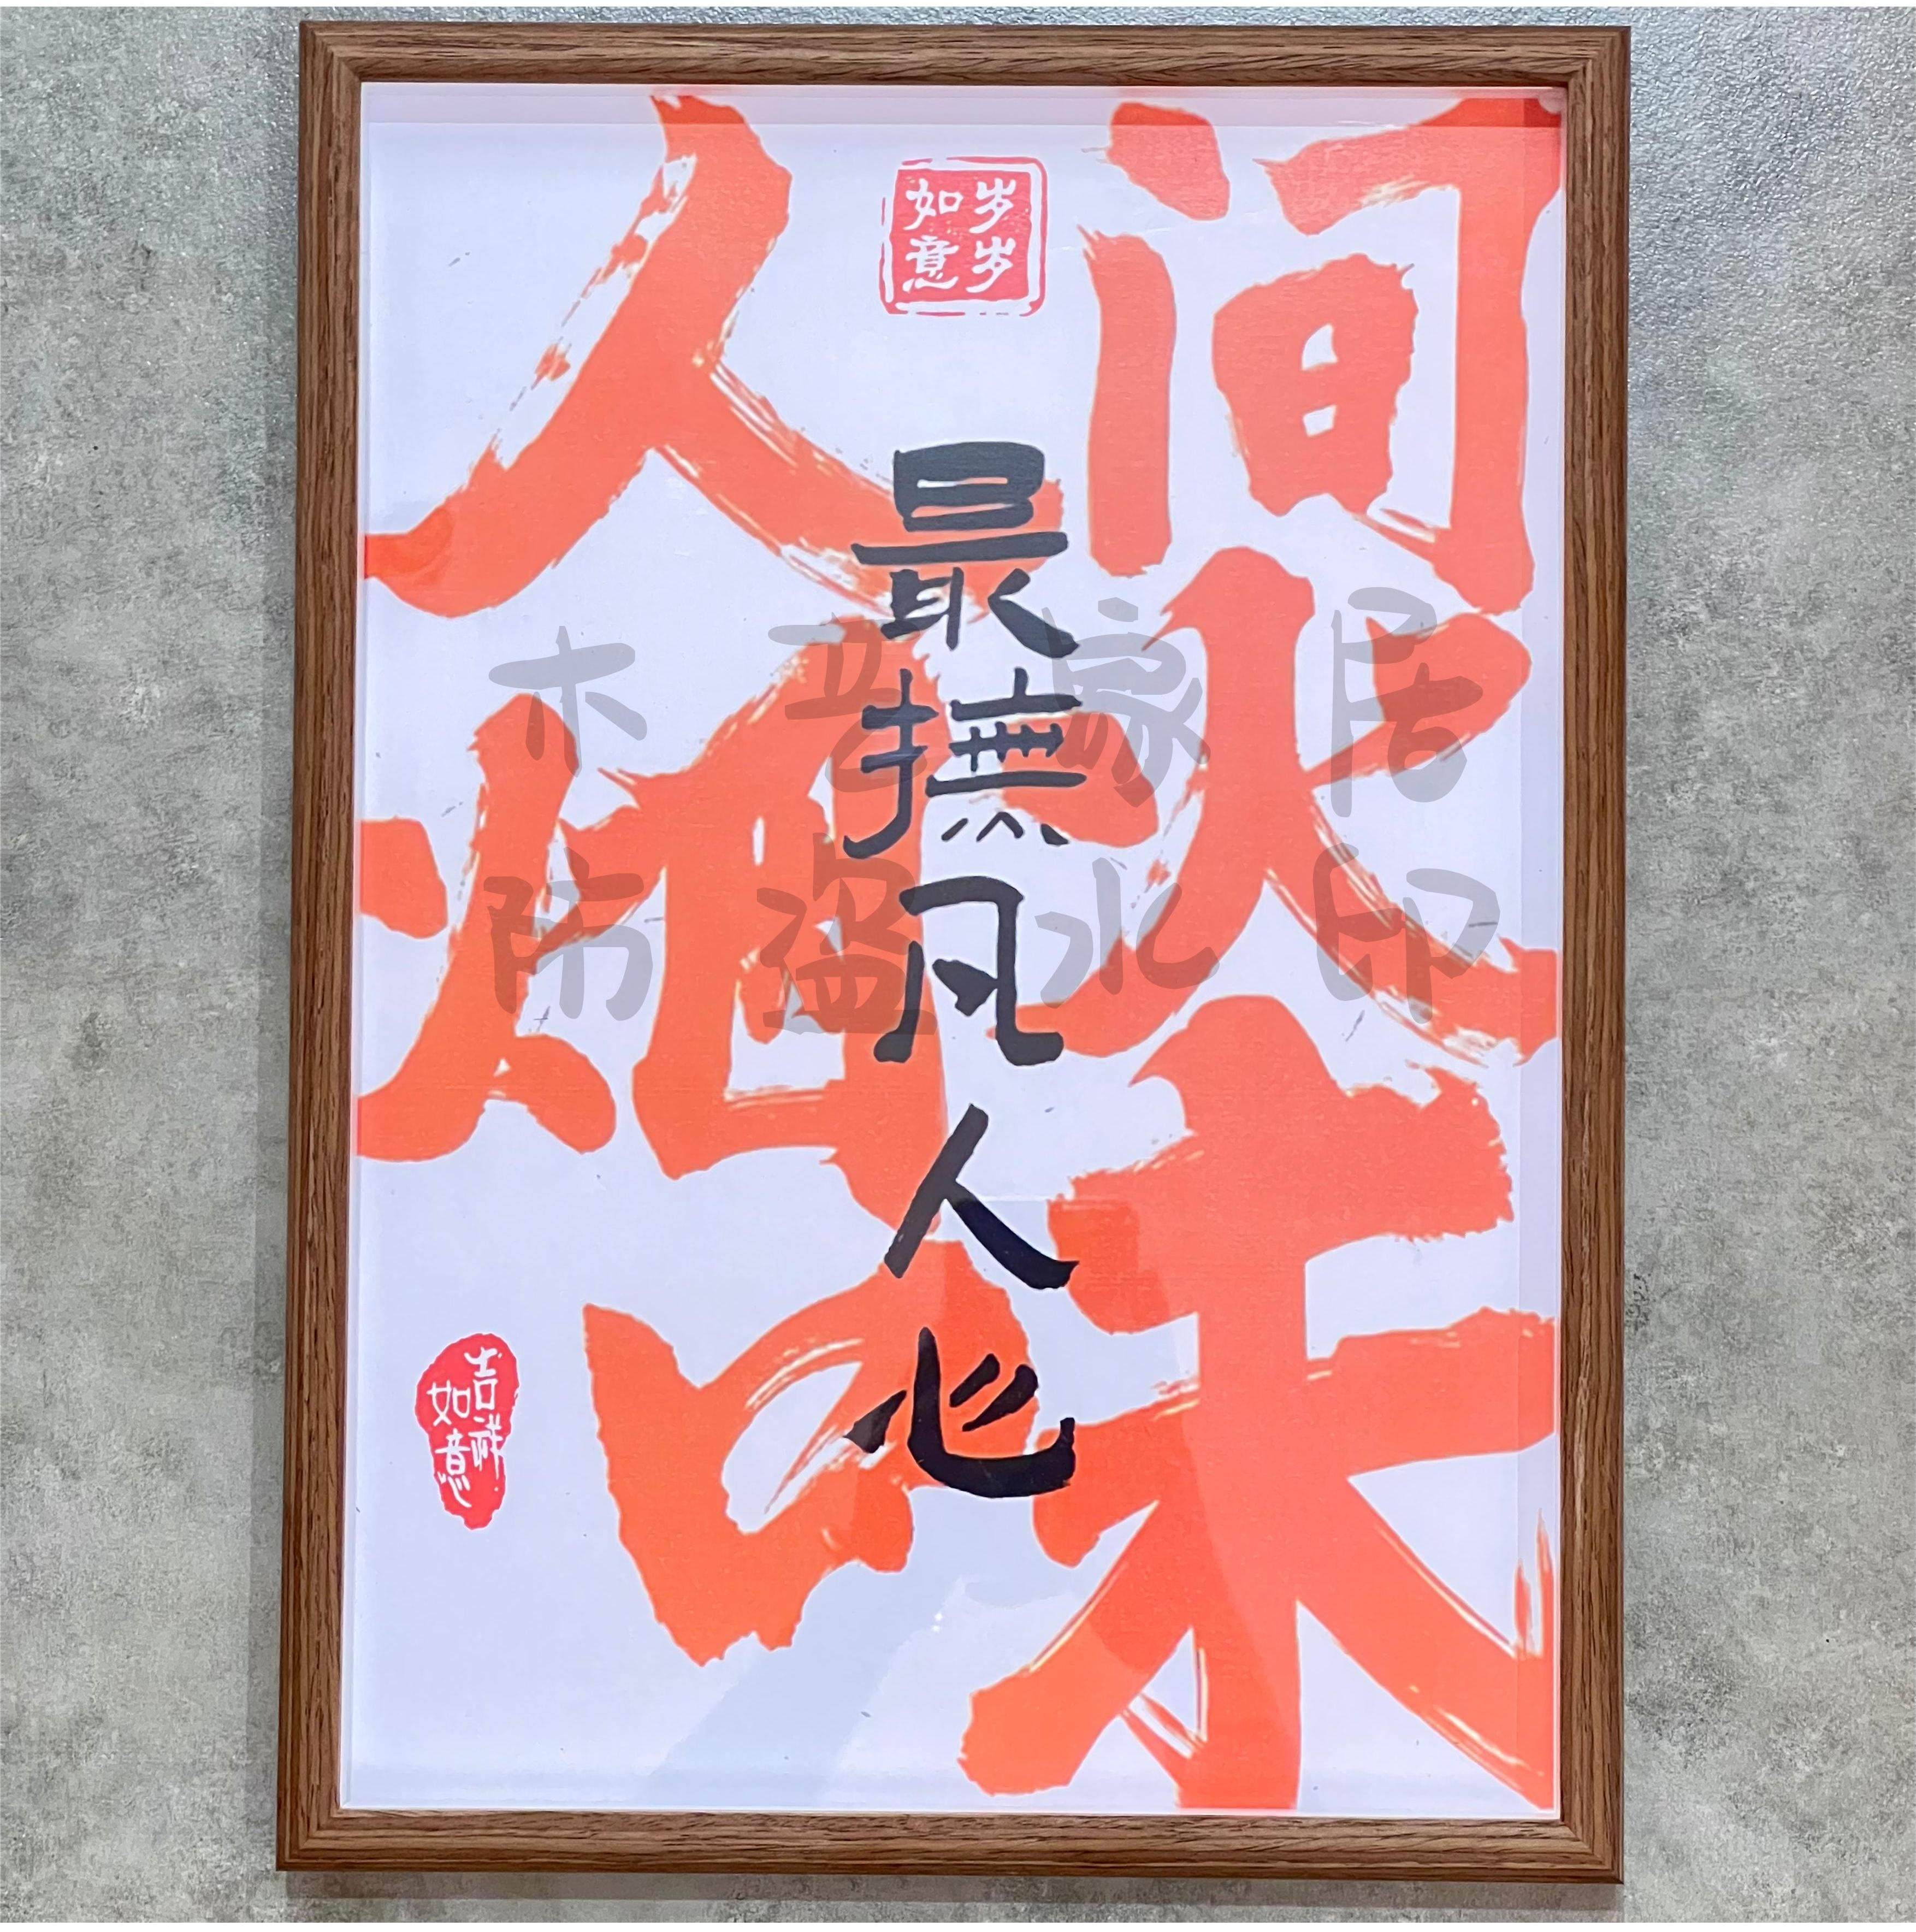 人间
烟火
味
岁岁
如意
最撫凡人心
吉祥
如意
木音家居
防盗水印